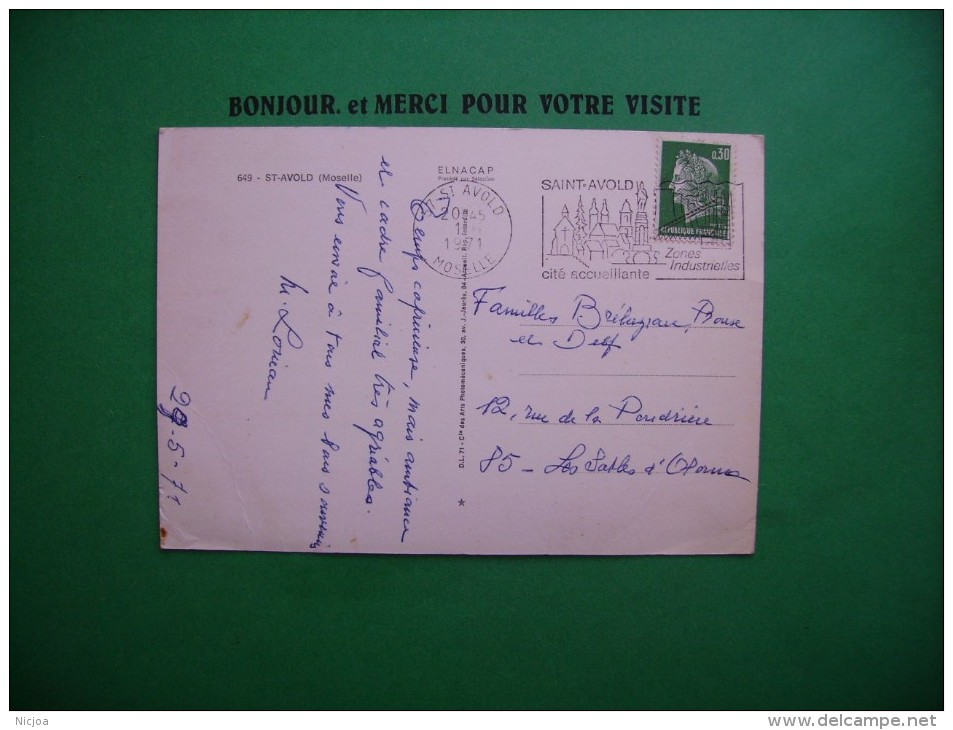 BONJOUR. et MERCI POUR VOTRE VISITE
649 - ST-AVOLD (Moselle)
ELNACAP
57-ST AVOLD
20 45
1971
MOSELLE
SAINT-AVOLD
cité accueillante
Zones
Industrielles
0,30
REPUBLIQUE FRANÇAISE
Temps capricieux, mais ambiance
et cadre familial très agréables.
Vous envoie à tous mes bons souvenirs
M.
D.L. 71 - Cie des Arts Photomécaniques, 50, av. J.-Jaurès, 94
Familles
et
12, rue de la Poudrière
85 - Les Sables d'Olonne
-5-71
*
Nicjoa
www.delcampe.net